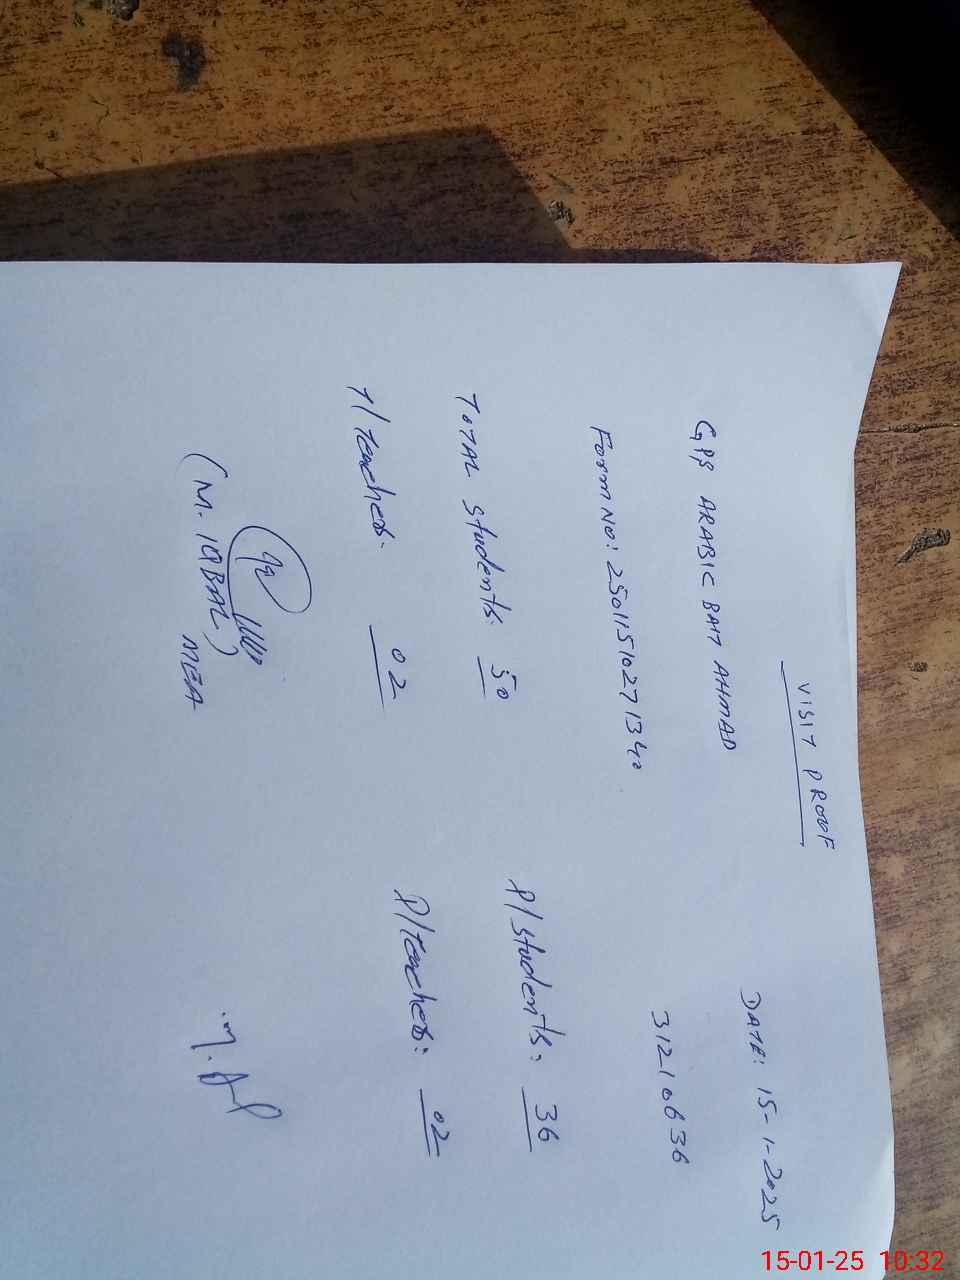 VISIT PROOF
DATE: 15-1-2025
GPS ARABIC BAIT AHMAD
31210636
Form No: 25011510271340
TOTAL students: 50 P/students: 36
T/Teachers: 02 P/Teachers: 02
(M. IQBAL)
MEA
15-01-25 10:32